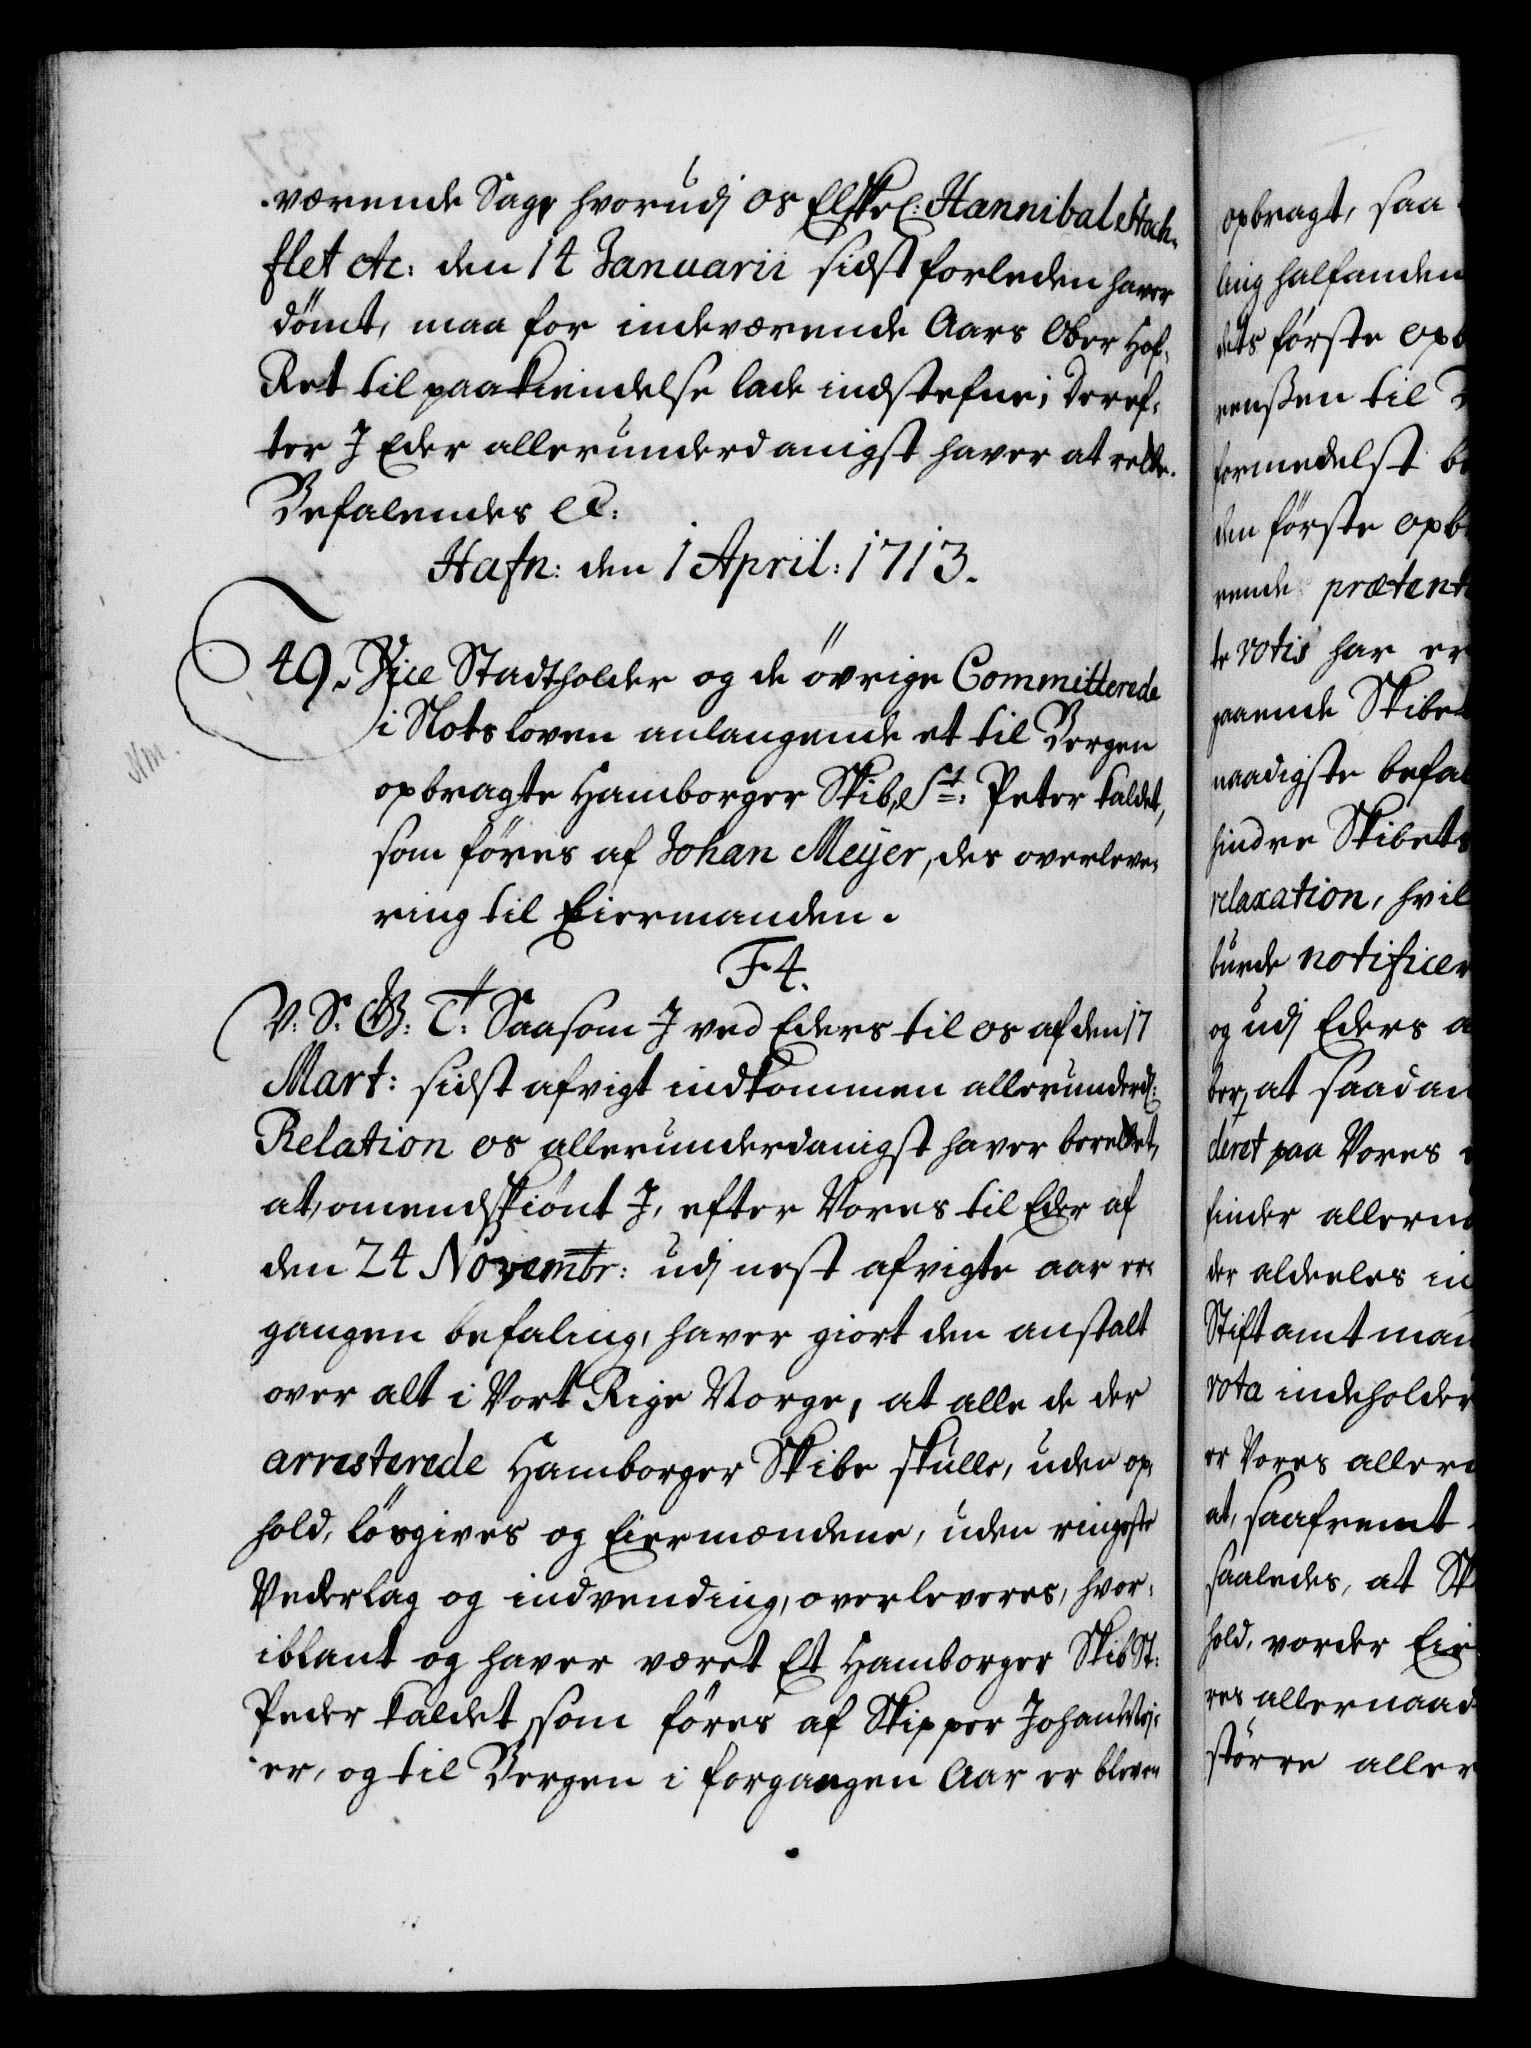 værende Sag, hvorudj os Elskel: Hannibal Stoch-
flet etc: den 14 Januarii sidst forleden haver
dömt, maa for indeværende Aars Ober Hof-
Ret til paakiendelse lade indstefne; Deref-
ter I Eder allerunderdanigst haver at rette.
Befalendes etc:
Hafn: den 1 April: 1713.
49. Vice Stadtholder og de övrige Committerede
i Slots loven anlangende et til Bergen
opbragte Hamborger Skib, St: Peter kaldet,
som föres af Johan Meyer, des overleve-
ring til Eiermanden.
F 4.
V: S: G: T: Saasom I ved Eders til os af den 17
Mart: sidst afvigt indkommen allerunderd:
Relation os allerunderdanigst haver berettet,
at, omendskiönt I, efter Vores til Eder af
den 24 Novembr: udj nest afvigte aar er-
gangen befaling, haver giort den anstalt
over alt i Vort Rige Norge, at alle de der
arresterede Hamborger Skibe skulle, uden op-
hold, lösgives og Eiermændene, uden ringeste
Vederlag og indvending, overleveres, hvor-
iblant og haver været Et Hamborger Skib St:
Peder kaldet, som föres af Skipper Johan Mej-
er, og til Bergen i forgangen Aar er bleven
opbragt, saa
ling halfanden
dets förste opb
renssen til
formedelst be
den förste opb
rende prætent
te votis har er
paaende Skibet
naadigste befal
hindre Skibets
relaxation, hvil
burde notificer
og udj Eders a
ber, at saadan
deret paa Vores
finder allerna
der aldeeles in
Stiftamtman
vota indeholder
er Vores allern
at, saafremt
saaledes, at Sk
hold, vorder Eier
res allernaad
större aller